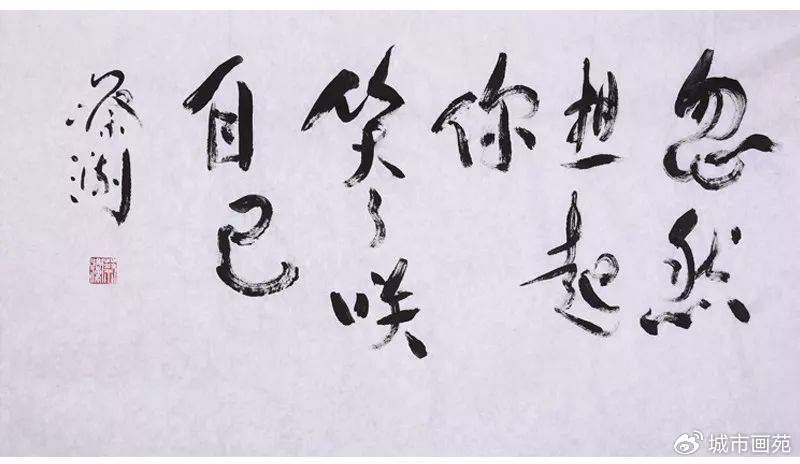 忽然
想起
你
笑了咲
自己
蔡瀾
城市画苑